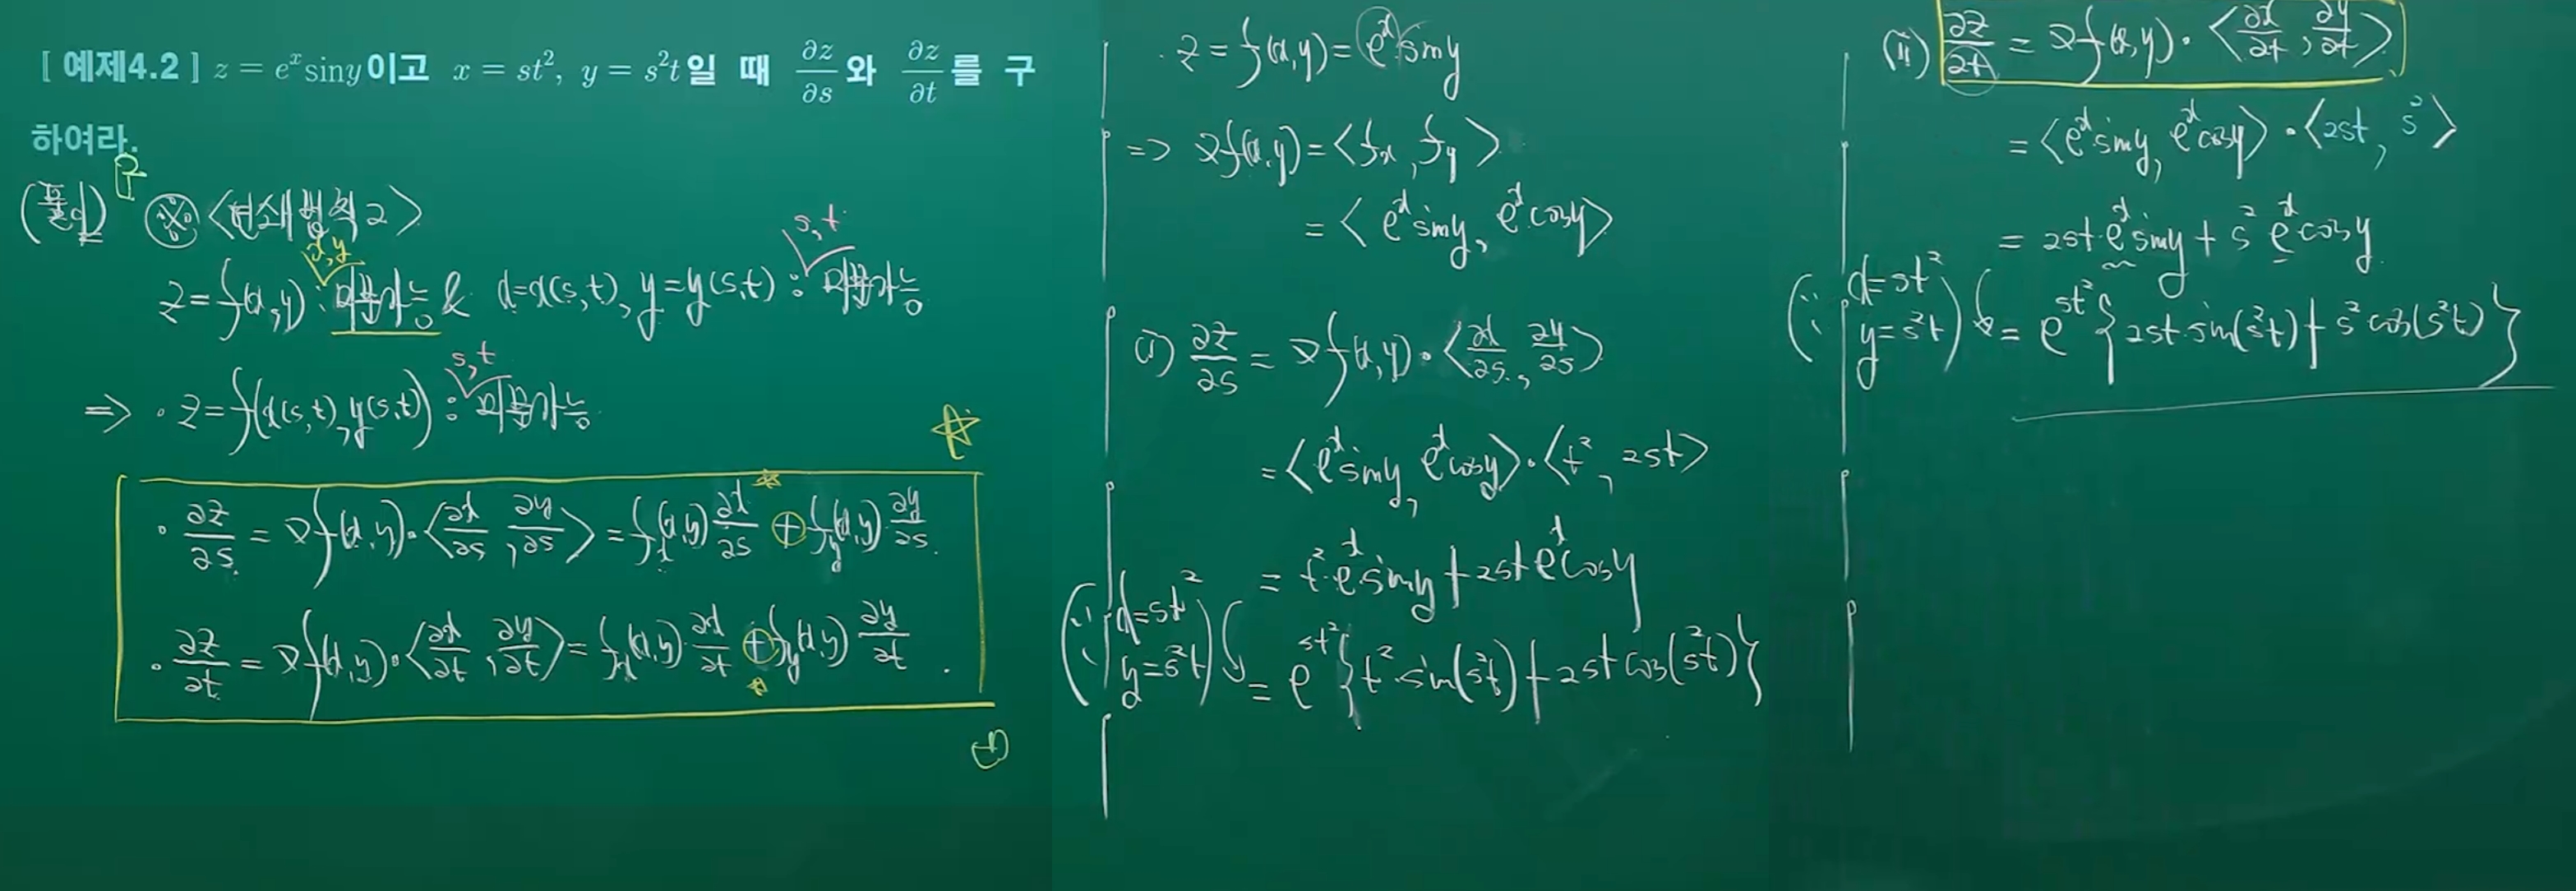 [ 예제4.2 ] z = eˣ siny 이고 x = st², y = s²t 일 때 ∂z/∂s 와 ∂z/∂t 를 구
하여라.
(풀이) ※ <연쇄법칙2>
x,y
s,t
z = f(x,y) : 미분가능 & x=x(s,t), y=y(s,t) : 미분가능
s,t
=> · z = f(x(s,t), y(s,t)) : 미분가능
· ∂z/∂s = ∇f(x,y)·<∂x/∂s, ∂y/∂s> = fx(x,y) ∂x/∂s + fy(x,y) ∂y/∂s.
· ∂z/∂t = ∇f(x,y)·<∂x/∂t, ∂y/∂t> = fx(x,y)·∂x/∂t + fy(x,y) ∂y/∂t.
· z = f(x,y) = eˣ siny
=> ∇f(x,y) = <fx, fy>
= <eˣ siny, eˣ cosy>
(i) ∂z/∂s = ∇f(x,y)·<∂x/∂s, ∂y/∂s>
= <eˣ siny, eˣ cosy>·<t², 2st>
= t²·eˣ·siny + 2st eˣ cosy
(∵ x=st², y=s²t)
= e^(st²) {t²·sin(s²t) + 2st cos(s²t)}
(ii) ∂z/∂t = ∇f(x,y)·<∂x/∂t, ∂y/∂t>
= <eˣ siny, eˣ cosy>·<2st, s²>
= 2st·eˣ siny + s² eˣ cosy
(∵ x=st², y=s²t)
= e^(st²) {2st·sin(s²t) + s² cos(s²t)}